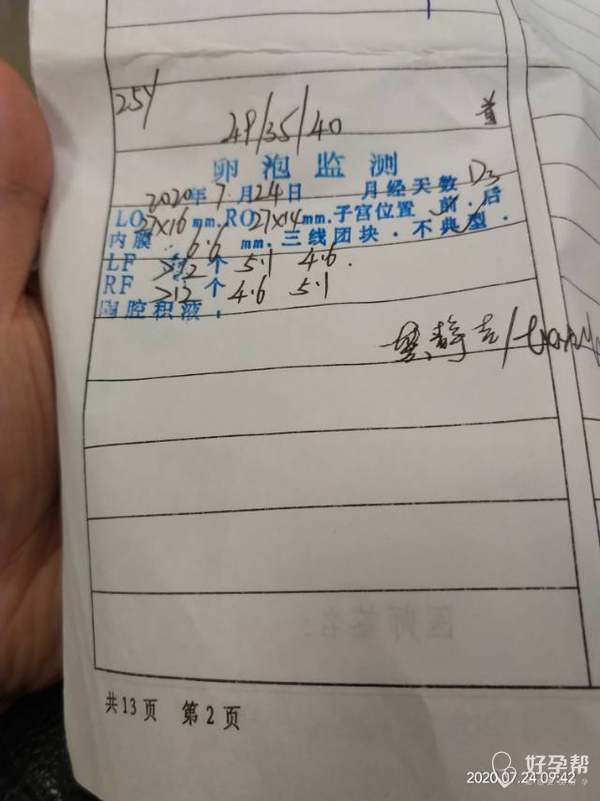 25Y
首
49/35/40
卵泡监测
2020年7月24日 月经天数 D3
LO 27×16 mm. RO 27×14 mm. 子宫位置 前. 后
内膜: 6.6 mm. 三线团块. 不典型.
LF >12个 5.1 4.6.
RF >12个 4.6 5.1
胸腔积液:
医师签名
共13页 第2页
好孕帮
2020.07.24 09:42